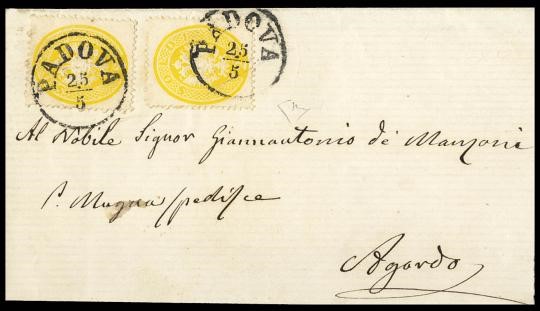 PADOVA
25
5
PADOVA
25
5
Al Nobile Signor Giannantonio de' Manzoni
Agordo